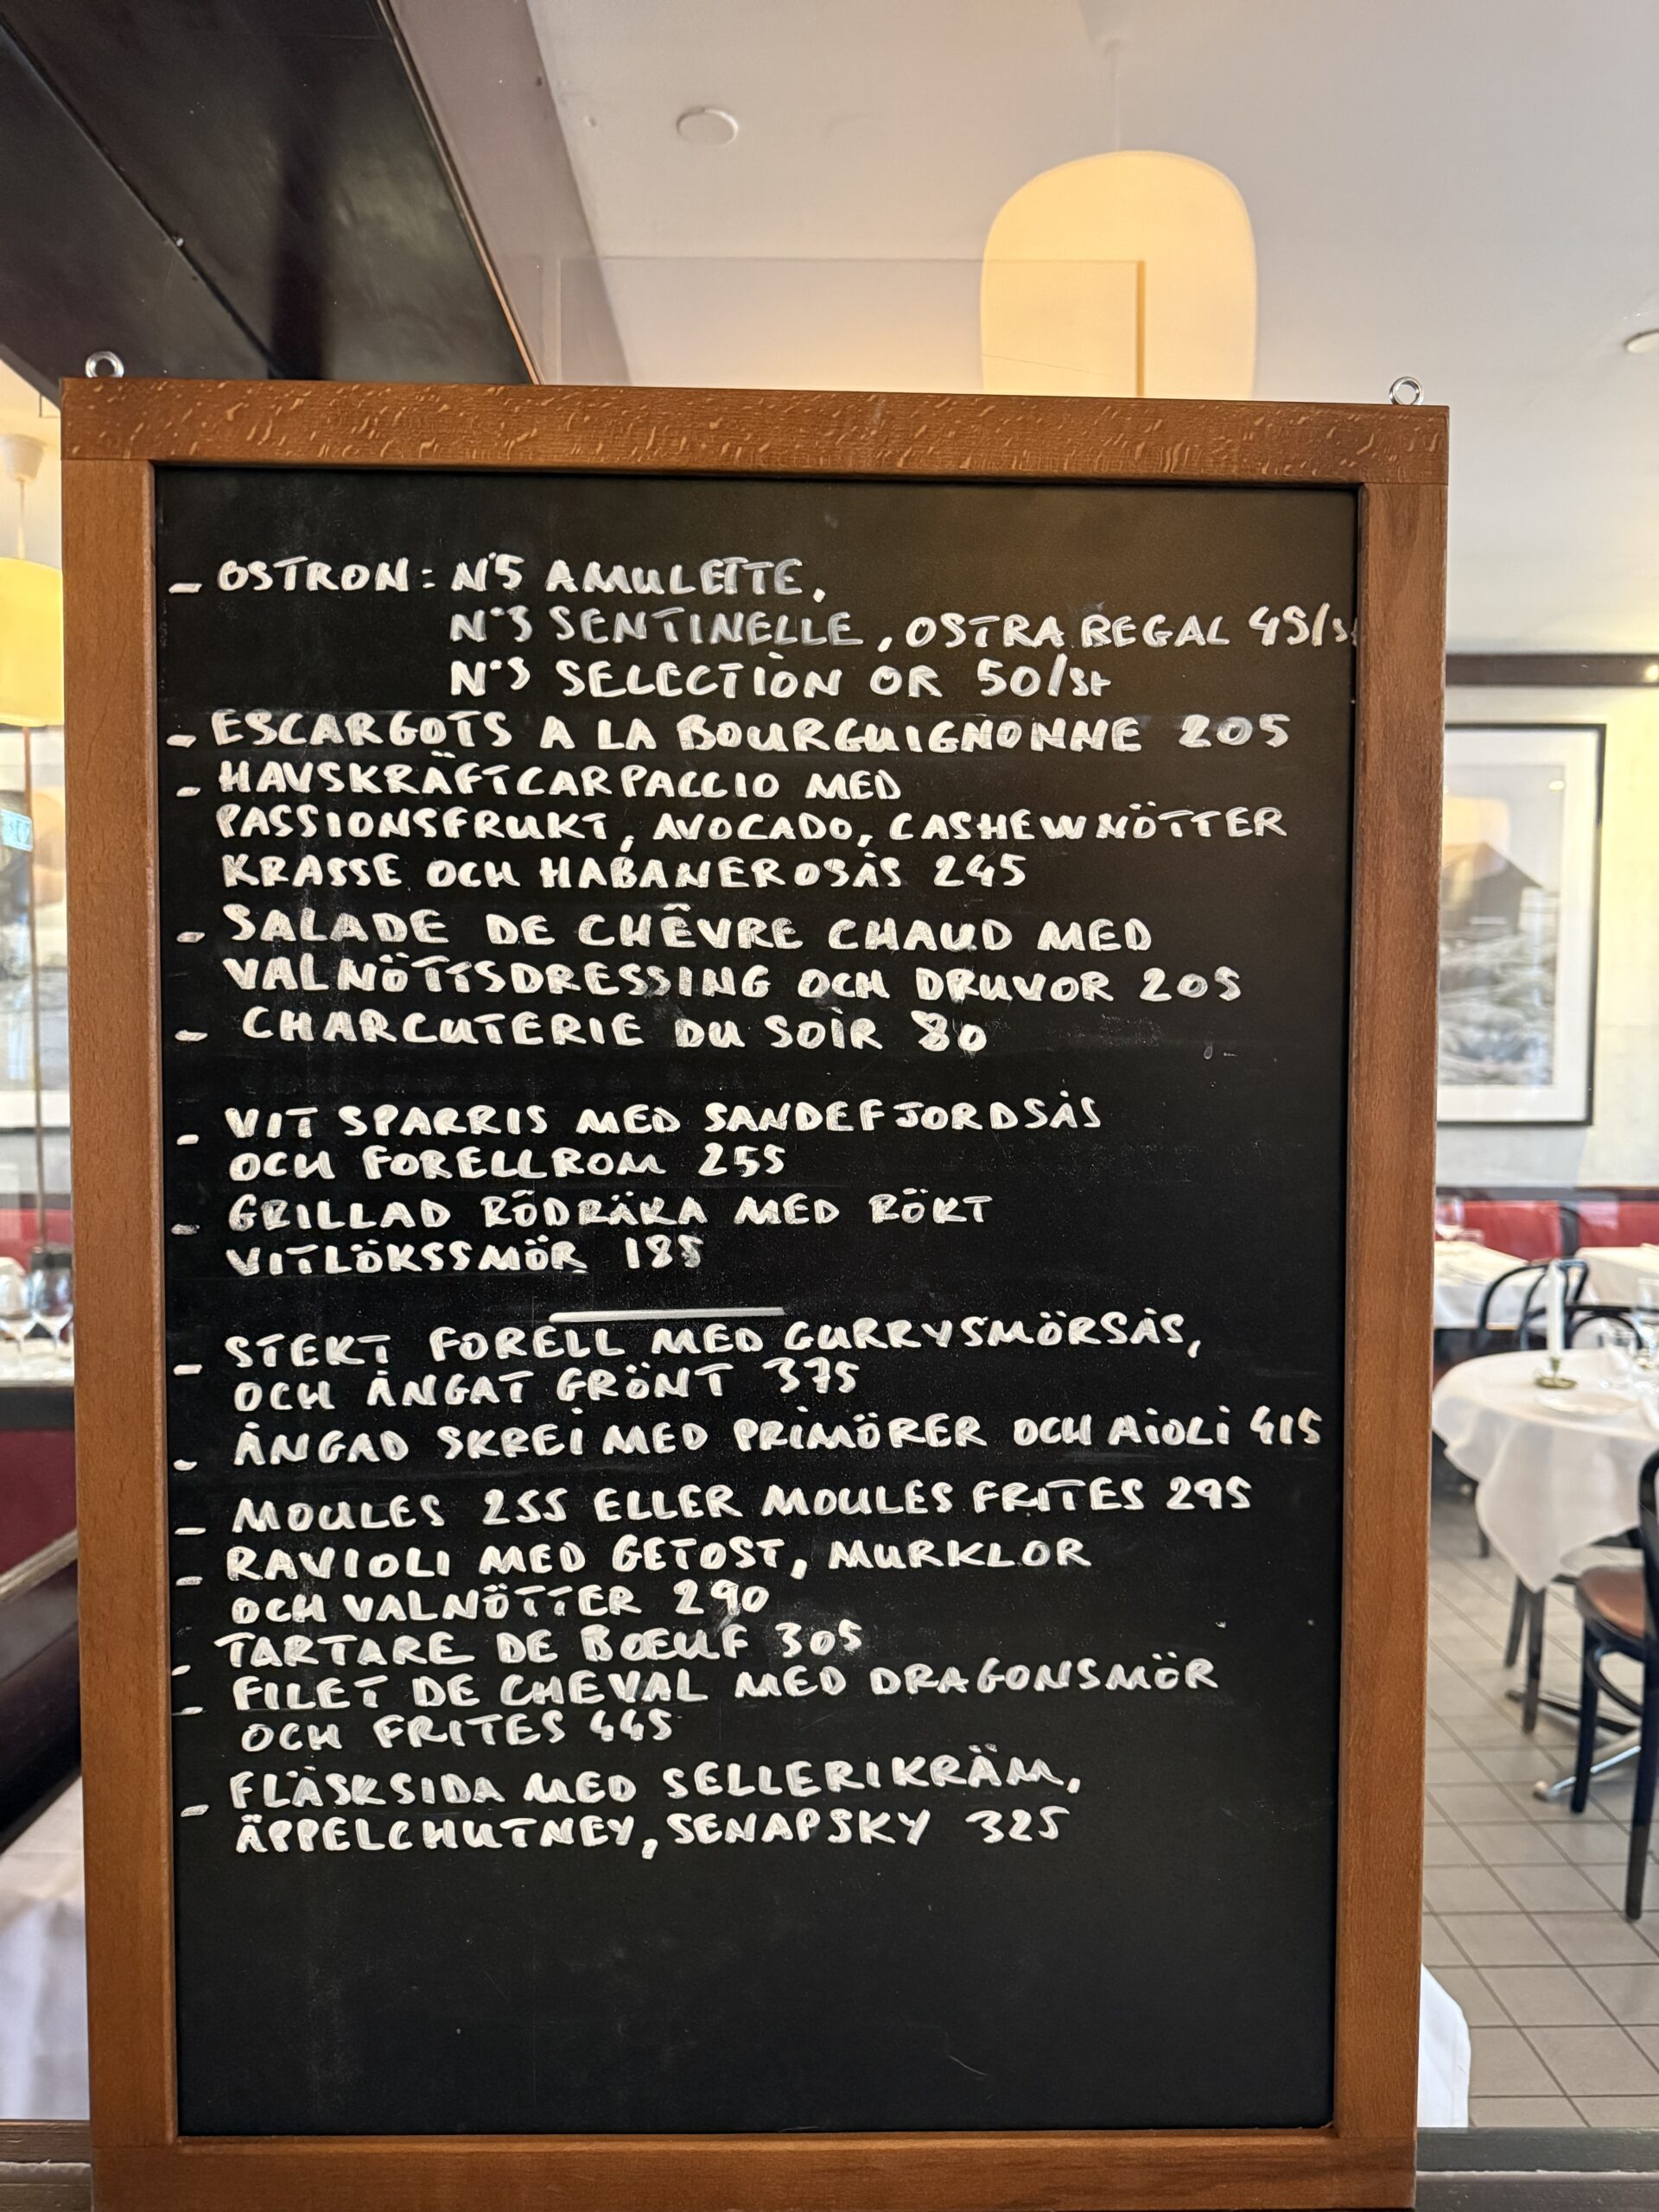 - OSTRON: N°5 AMULETTE,
N°3 SENTINELLE, OSTRA REGAL 45/st
N°3 SELECTION OR 50/st
- ESCARGOTS A LA BOURGUIGNONNE 205
- HAVSKRÄFTCARPACCIO MED
PASSIONSFRUKT, AVOCADO, CASHEWNÖTTER
KRASSE OCH HABANEROSÅS 245
- SALADE DE CHÊVRE CHAUD MED
VALNÖTTSDRESSING OCH DRUVOR 205
- CHARCUTERIE DU SOIR 80
- VIT SPARRIS MED SANDEFJORDSÅS
OCH FORELLROM 255
- GRILLAD RÖDRÄKA MED RÖKT
VITLÖKSSMÖR 185
- STEKT FORELL MED CURRYSMÖRSÅS,
OCH ÅNGAT GRÖNT 375
- ÅNGAD SKREI MED PRIMÖRER OCH AIOLI 415
- MOULES 255 ELLER MOULES FRITES 295
- RAVIOLI MED GETOST, MURKLOR
OCH VALNÖTTER 290
- TARTARE DE BŒUF 305
- FILET DE CHEVAL MED DRAGONSMÖR
OCH FRITES 445
- FLÄSKSIDA MED SELLERIKRÄM,
ÄPPELCHUTNEY, SENAPSKY 325